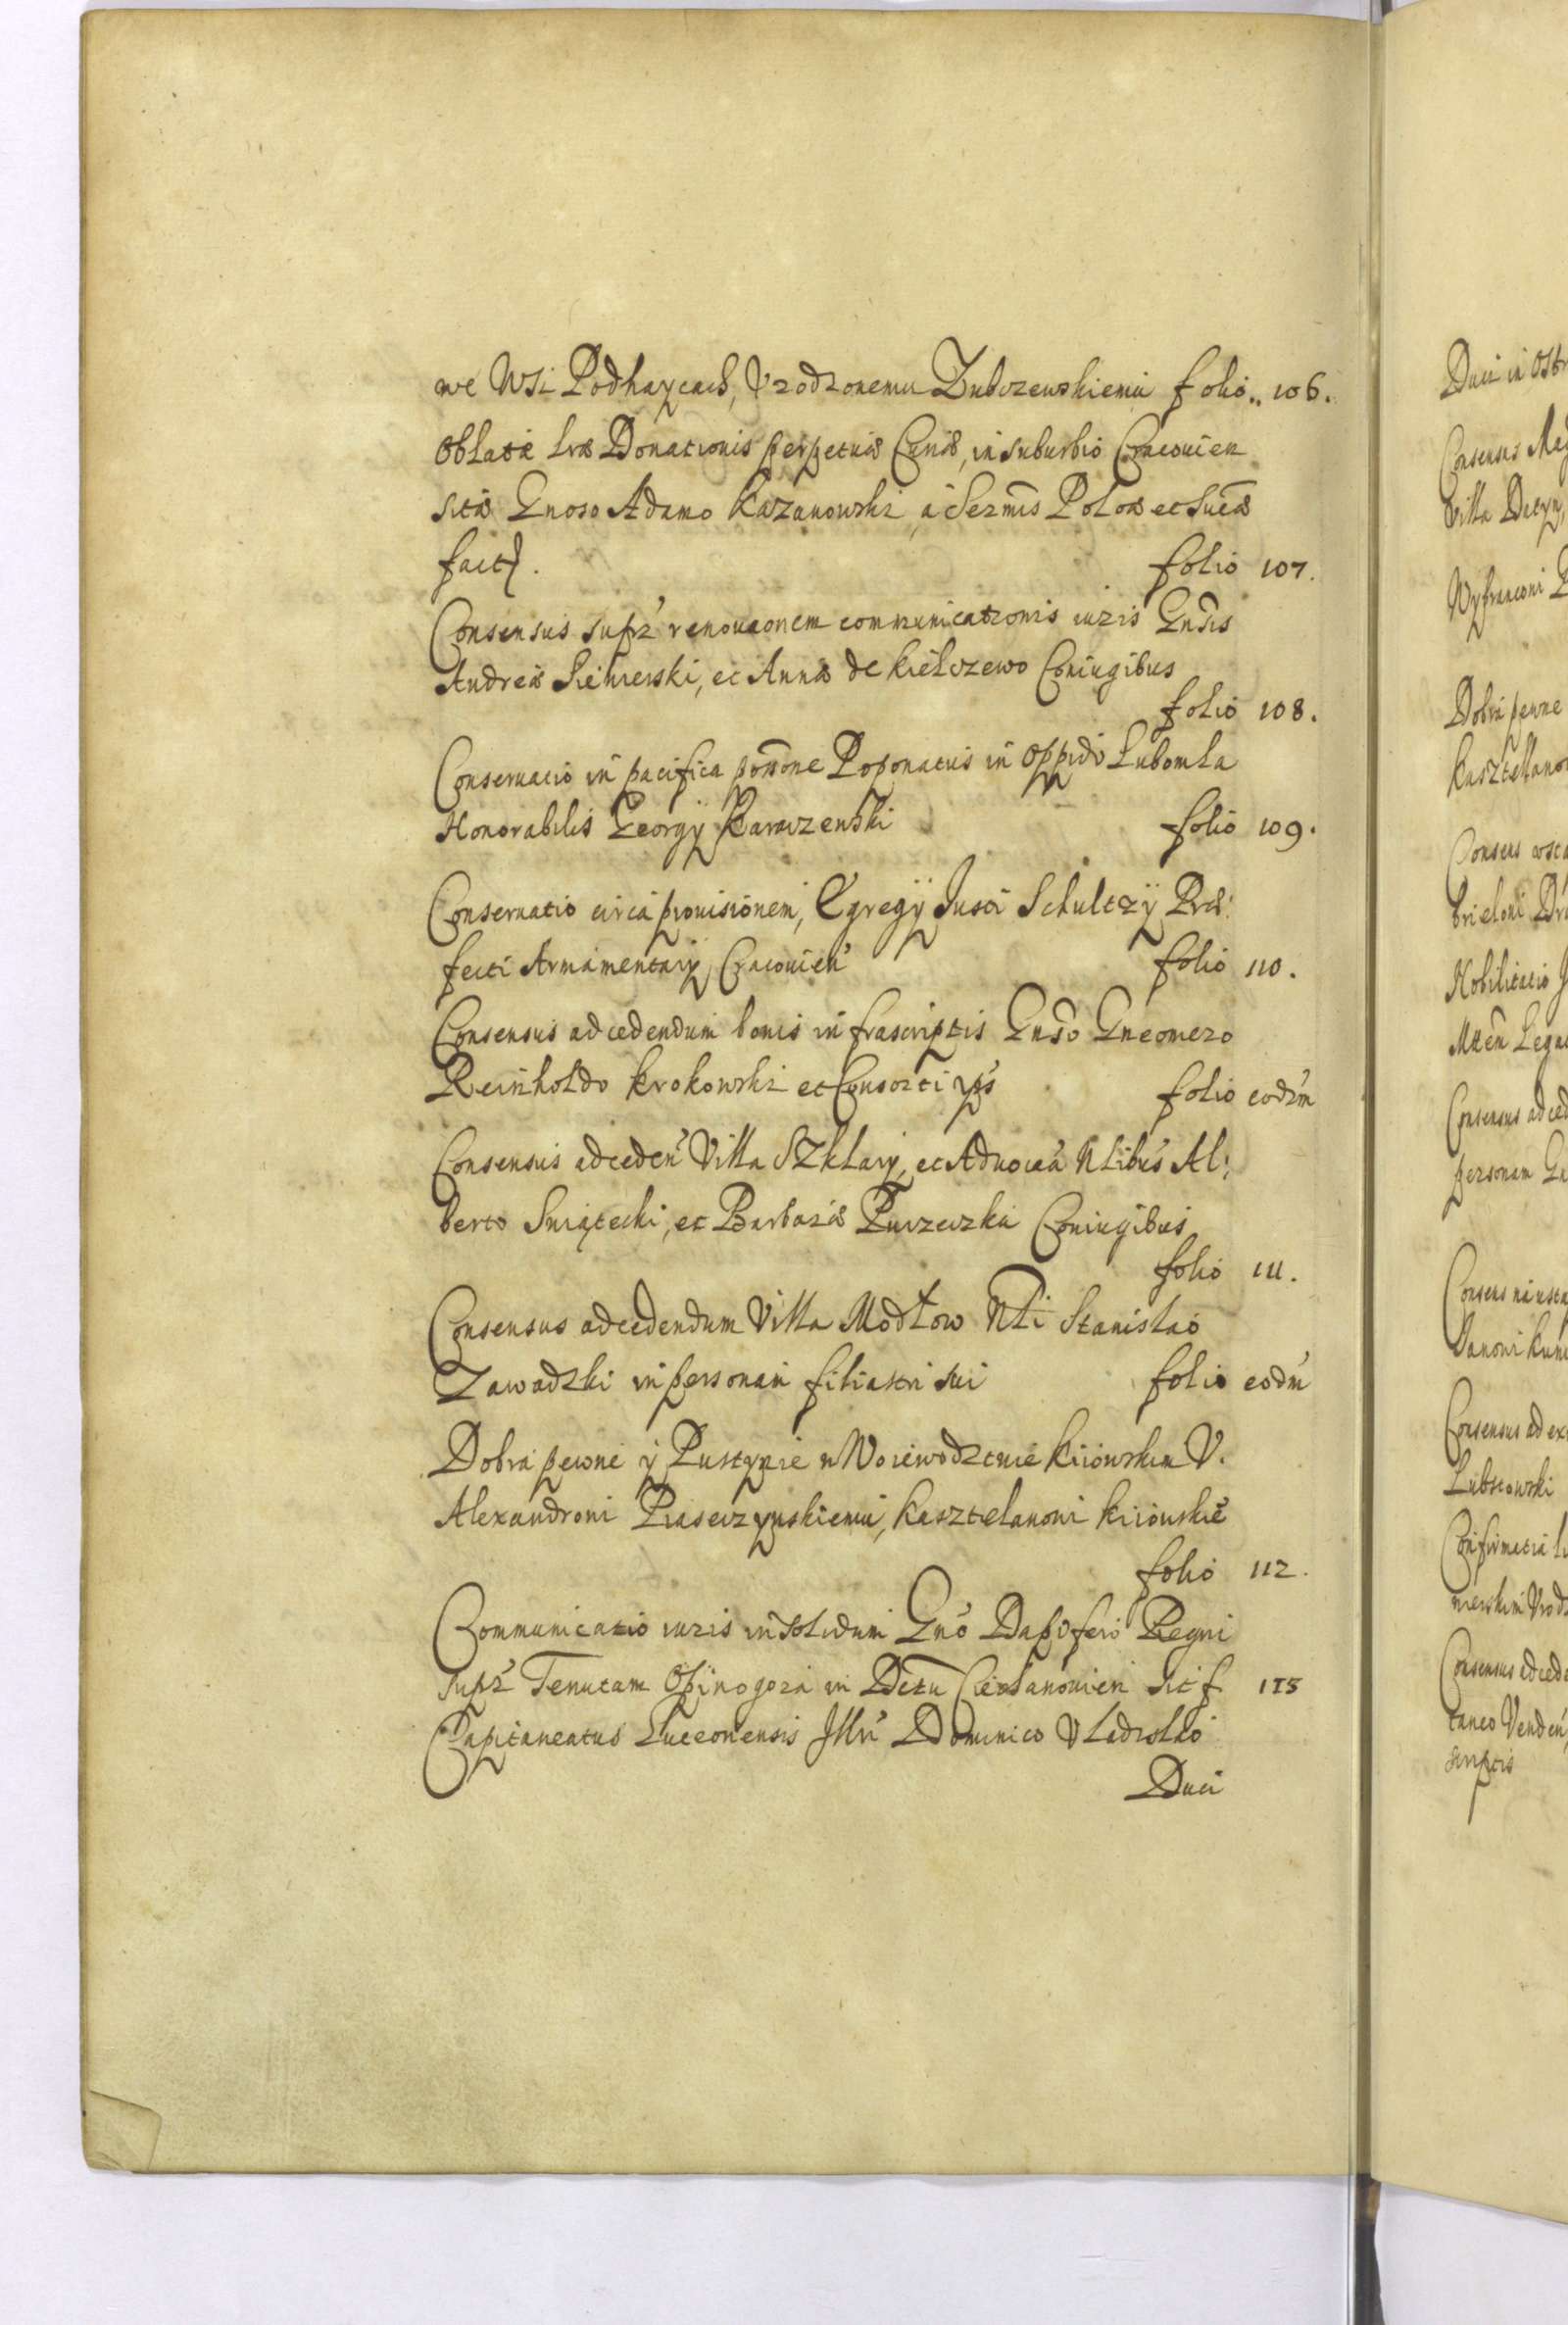 we Wsi Podhaycach, Urodzonemu Zubczewskiemu folio 106.
Oblatae lrae Donationis perpetuae Curiae, in suburbio Cracouien
sitae Gnoso Adamo Kazanowski a Sermis Polae et Sueae
fact.
folio 107.
Consensus supr renouaonem communicationis iuris Gnosis
Andreae Sieniewski, et Annae de Kiełczewo Coniugibus
folio 108.
Conseruatio in pacifica possone Poponatus in Oppido Lubomla
Honorabilis Georgij Karaczewski folio 109.
Conseruatio circa prouisionem, Egregij Justi Schultzij Prae:
fecti Armamentarij Cracouien folio 110.
Consensus ad cedendum bonis infrascriptis Gnoso Gneomero
Reinholdo Krokowski et Consorti ips folio eodem
Consensus ad ceden Villa Szklary, et Aduocaa Nlibus Al:
berto Swiątecki, et Barbara Coniugibus
folio 111.
Consensus ad cedendum Villa Modłow Nli Stanislao
Zawadzki in personam filiastri sui folio eodm
Dobra pewne y Pustynie w Woiewodztwie Kiiowskim V.
Alexandroni Piaseczynskiemu, Kasztelanoni Kiiouskie
folio 112.
Communicatio iuris in solidum Gno Dapifero Regni
supr Tenutam Opinogora in Dctu Ciechanouien sit f 115
Capitaneatus Luceoriensis Illri Dominico Vladislao
Duci
Duci in Ostr
Consensus Mag
Villa
Dobra pewne
Kasztellano
Nobilitatio J
Consensus ad ced
personam
Consens na
Consensus ad ex
Consensus ad cede
taneo Venden
scriptis